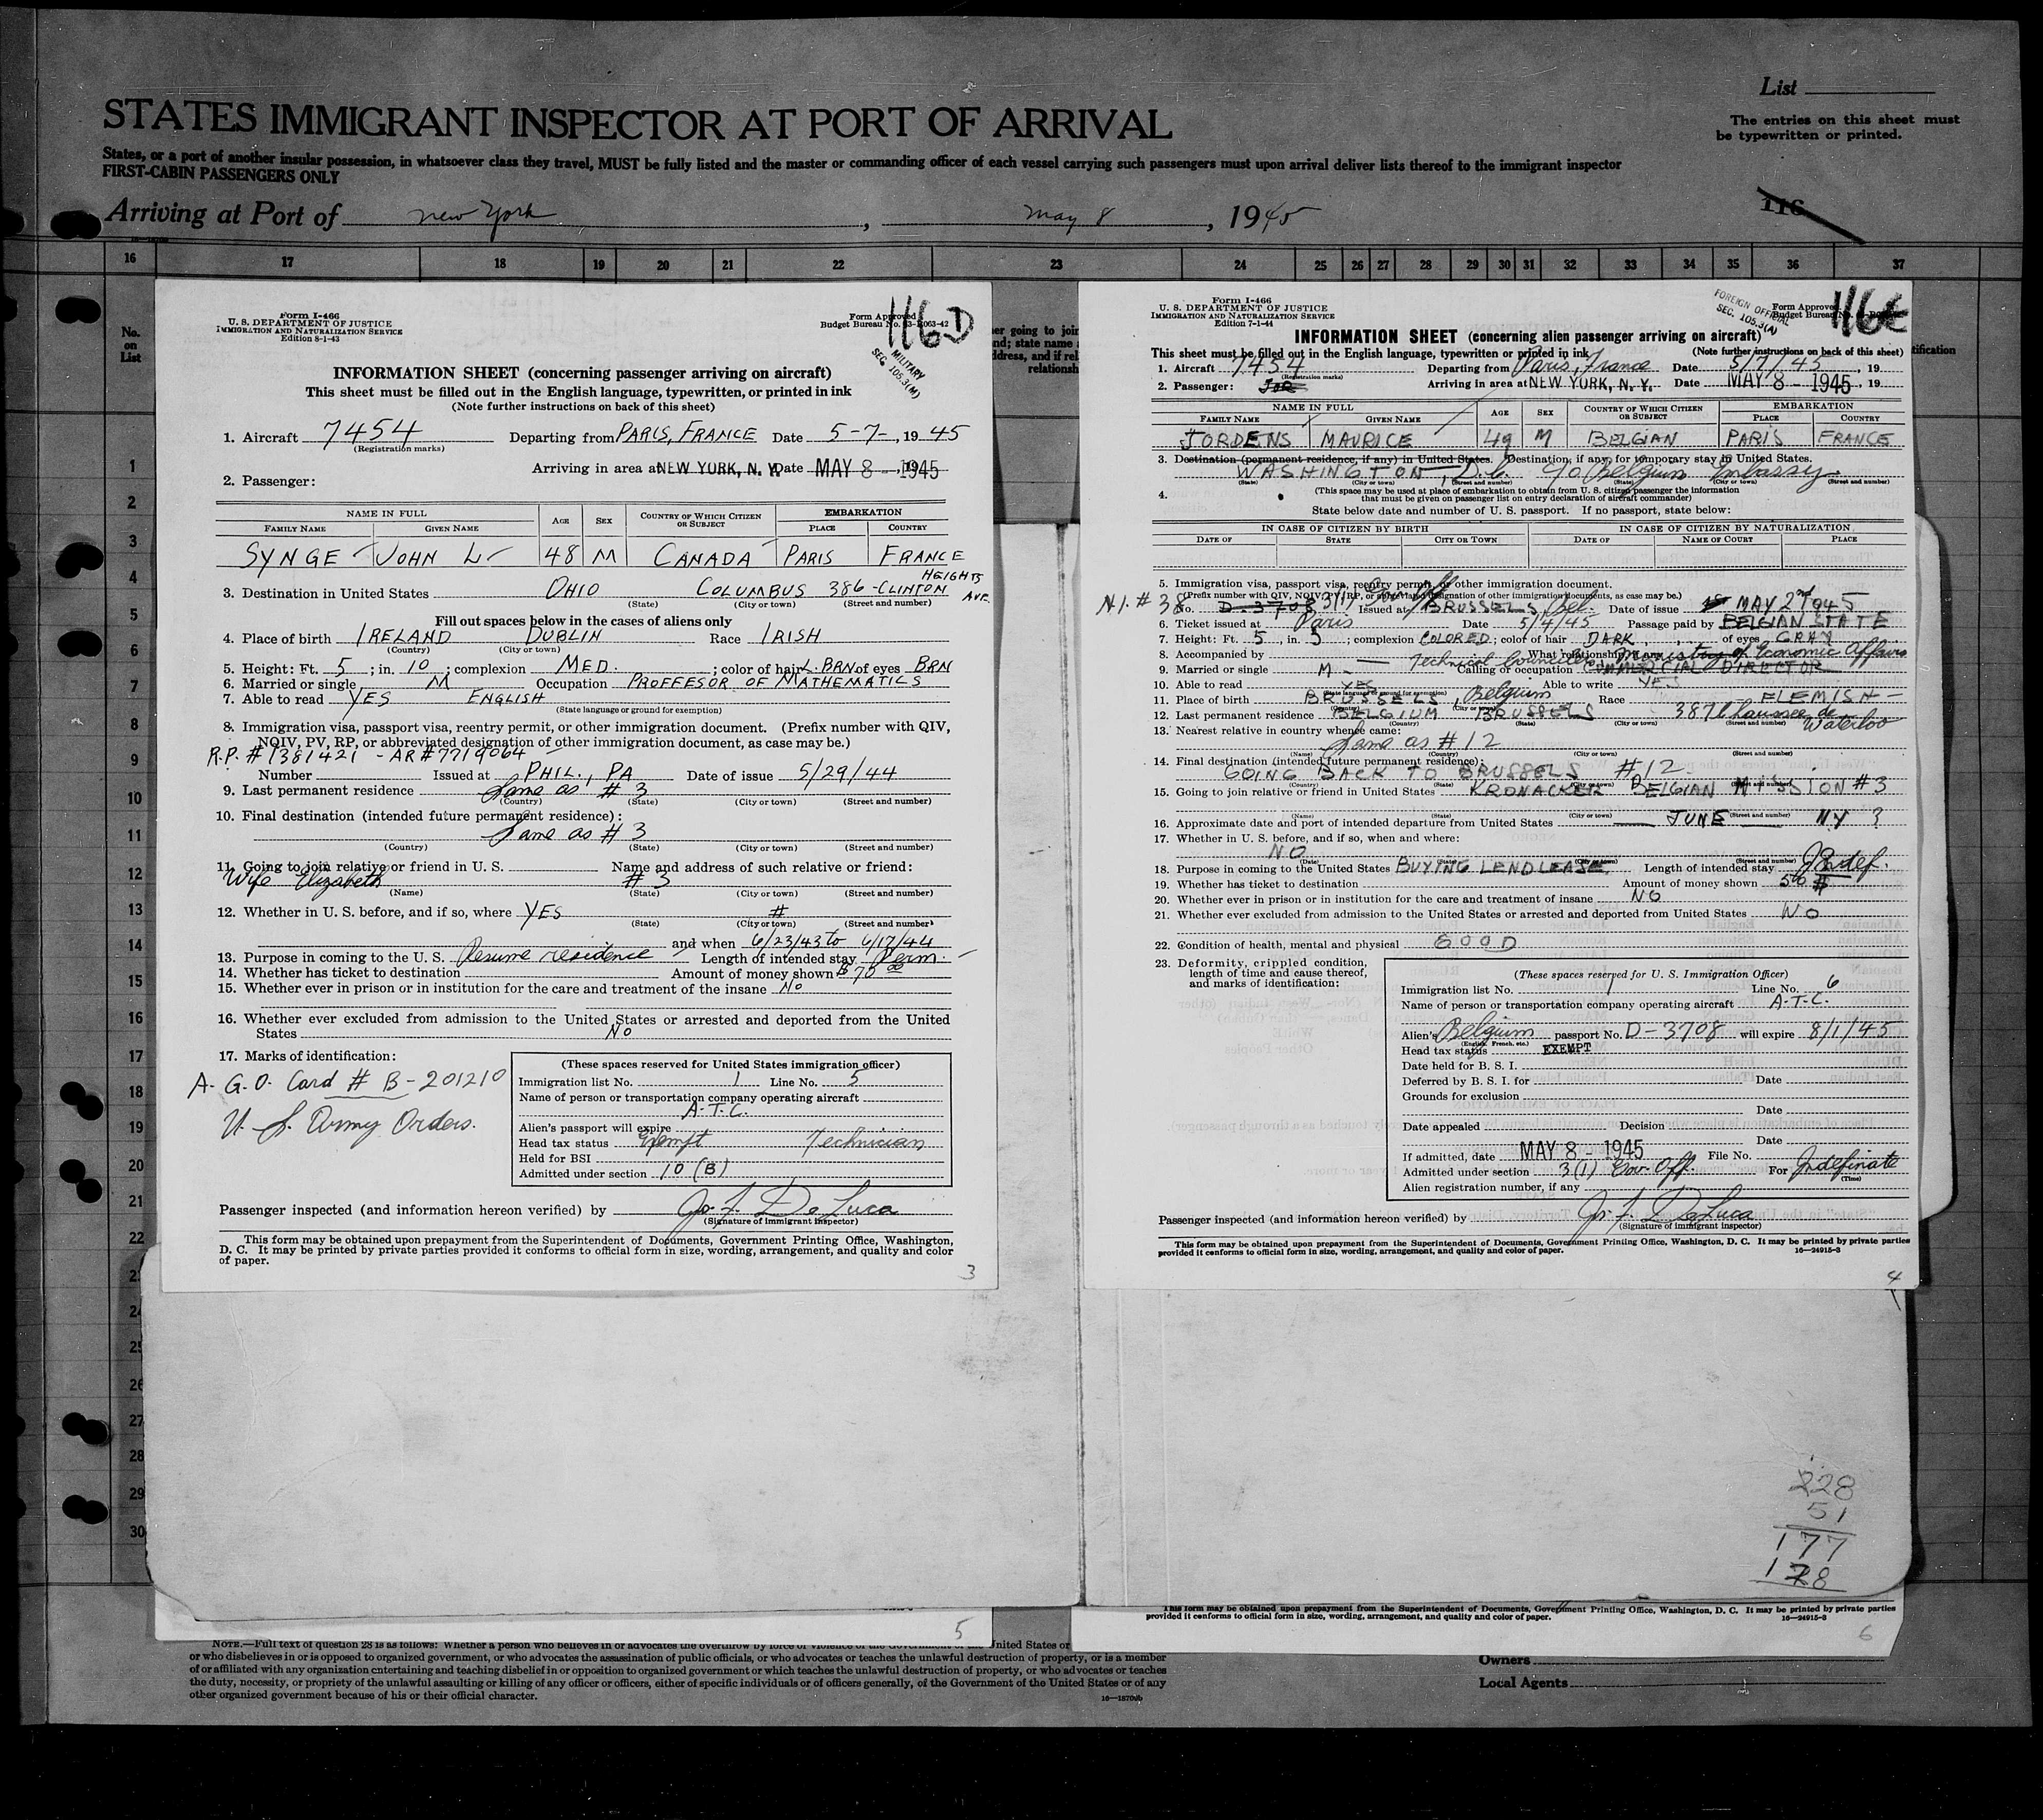 List
STATES IMMIGRANT INSPECTOR AT PORT OF ARRIVAL
The entries on this sheet must
be typewritten or printed.
States, or a port of another insular possession, in whatsoever class they travel, MUST be fully listed and the master or commanding officer of each vessel carrying such passengers must upon arrival deliver lists thereof to the immigrant inspector
FIRST-CABIN PASSENGERS ONLY
Arriving at Port of new York, may 8, 1945
116
16 17 18 19 20 21 22 23 24 25 26 27 28 29 30 31 32 33 34 35 36 37
No.
on
List
1
2
3
4
5
6
7
8
9
10
11
12
13
14
15
16
17
18
19
20
21
22
24
25
26
27
28
29
30
Form I-466
U. S. DEPARTMENT OF JUSTICE
IMMIGRATION AND NATURALIZATION SERVICE
Edition 8-1-43
116D
Form Approved
Budget Bureau No. 43-R063-42
MILITARY
SEC. 105.3(M)
INFORMATION SHEET (concerning passenger arriving on aircraft)
This sheet must be filled out in the English language, typewritten, or printed in ink
(Note further instructions on back of this sheet)
1. Aircraft 7454 Departing from PARIS, FRANCE Date 5-7-, 1945
(Registration marks)
Arriving in area at NEW YORK, N. Y. Date MAY 8 - 1945
2. Passenger:
NAME IN FULL AGE SEX COUNTRY OF WHICH CITIZEN OR SUBJECT EMBARKATION
FAMILY NAME GIVEN NAME PLACE COUNTRY
SYNGE JOHN L 48 M CANADA PARIS FRANCE
3. Destination in United States OHIO COLUMBUS 386 -CLINTON HEIGHTS AVE.
(State) (City or town) (Street and number)
Fill out spaces below in the cases of aliens only
4. Place of birth IRELAND DUBLIN Race IRISH
(Country) (City or town)
5. Height: Ft. 5; in. 10; complexion MED.; color of hair L. BRN of eyes BRN
6. Married or single M Occupation PROFFESOR OF MATHEMATICS
7. Able to read YES ENGLISH
(State language or ground for exemption)
8. Immigration visa, passport visa, reentry permit, or other immigration document. (Prefix number with QIV,
NQIV, PV, RP, or abbreviated designation of other immigration document, as case may be.)
R.P. # 1381421 - AR # 7719064
Number Issued at PHIL., PA Date of issue 5/29/44
9. Last permanent residence Same as # 3
(Country) (State) (City or town) (Street and number)
10. Final destination (intended future permanent residence):
Same as # 3
(Country) (State) (City or town) (Street and number)
11. Going to join relative or friend in U. S. Name and address of such relative or friend:
Wife Elizabeth # 3
(Name) (State) (City or town) (Street and number)
12. Whether in U. S. before, and if so, where YES #
(State) (City or town) (Street and number)
and when 6/23/43 to 6/17/44
13. Purpose in coming to the U. S. Resume residence Length of intended stay Perm.
14. Whether has ticket to destination Amount of money shown $ 70 00
15. Whether ever in prison or in institution for the care and treatment of the insane No
16. Whether ever excluded from admission to the United States or arrested and deported from the United
States No
17. Marks of identification:
A. G. O. Card # B-201210
U. S. Army Orders.
(These spaces reserved for United States immigration officer)
Immigration list No. 1 Line No. 5
Name of person or transportation company operating aircraft
A.T.C.
Alien's passport will expire
Head tax status Exempt Technician
Held for BSI
Admitted under section 10 (B)
Passenger inspected (and information hereon verified) by Jo. F. DeLuca
(Signature of immigrant inspector)
This form may be obtained upon prepayment from the Superintendent of Documents, Government Printing Office, Washington,
D. C. It may be printed by private parties provided it conforms to official form in size, wording, arrangement, and quality and color
of paper.
3
Form I-466
U. S. DEPARTMENT OF JUSTICE
IMMIGRATION AND NATURALIZATION SERVICE
Edition 7-1-44
FOREIGN OFFICIAL
SEC. 105.3(A)
Form Approved
Budget Bureau
116E
INFORMATION SHEET (concerning alien passenger arriving on aircraft)
This sheet must be filled out in the English language, typewritten or printed in ink (Note further instructions on back of this sheet)
1. Aircraft 7454 Departing from Paris, France Date 5/7/45, 19
(Registration marks)
2. Passenger: JOR Arriving in area at NEW YORK, N. Y. Date MAY 8 - 1945, 19
NAME IN FULL AGE SEX COUNTRY OF WHICH CITIZEN OR SUBJECT EMBARKATION
FAMILY NAME GIVEN NAME PLACE COUNTRY
JORDENS MAURICE 49 M BELGIAN PARIS FRANCE
3. Destination (permanent residence, if any) in United States. Destination, if any, for temporary stay in United States.
WASHINGTON, D.C. c/o Belgium Embassy
(State) (City or town) (Street and number) (State) (City or town) (Street and number)
4. (This space may be used at place of embarkation to obtain from U. S. citizen passenger the information
that must be given on passenger list on entry declaration of aircraft commander)
State below date and number of U. S. passport. If no passport, state below:
IN CASE OF CITIZEN BY BIRTH IN CASE OF CITIZEN BY NATURALIZATION
DATE OF STATE CITY OR TOWN DATE OF NAME OF COURT PLACE
5. Immigration visa, passport visa, reentry permit, or other immigration document.
(Prefix number with QIV, NQIV, PV, RP, or abbreviated designation of other immigration documents, as case may be.)
N.I. # 38 No. D-3708 3(1) Issued at BRUSSELS, Bel. Date of issue MAY 2nd 1945
6. Ticket issued at Paris Date 5/4/45 Passage paid by BELGIAN STATE
7. Height: Ft. 5, in. 5; complexion COLORED; color of hair DARK of eyes GRAY
8. Accompanied by — What relationship
Technical Ministry of Economic Affairs
9. Married or single M - Calling or occupation COMMERCIAL DIRECTOR
10. Able to read YES Able to write YES
(State language or ground for exemption)
11. Place of birth BRUSSELS, Belgium Race FLEMISH -
(Country) (City or town)
12. Last permanent residence BELGIUM BRUSSELS 387 Chaussee de Waterloo
(Country) (State) (City or town) (Street and number)
13. Nearest relative in country whence came:
Same as # 12
(Name) (Country) (City or town) (Street and number)
14. Final destination (intended future permanent residence):
GOING BACK TO BRUSSELS #12
(Country) (State) (City or town) (Street and number)
15. Going to join relative or friend in United States KRONACKER BELGIAN MISSION #3
(Name) (State) (City or town) (Street and number)
16. Approximate date and port of intended departure from United States JUNE NY ?
17. Whether in U. S. before, and if so, when and where:
NO
(Date) (City or town) (Street and number)
18. Purpose in coming to the United States BUYING LENDLEASE Length of intended stay Indef.
19. Whether has ticket to destination Amount of money shown 50 $
20. Whether ever in prison or in institution for the care and treatment of insane NO
21. Whether ever excluded from admission to the United States or arrested and deported from United States NO
22. Condition of health, mental and physical GOOD
23. Deformity, crippled condition,
length of time and cause thereof,
and marks of identification:
(These spaces reserved for U. S. Immigration Officer)
Immigration list No. 1 Line No. 6
Name of person or transportation company operating aircraft A.T.C.
Alien's Belgium passport No. D-3708 will expire 8/1/45
(English, French, etc.)
Head tax status EXEMPT
Date held for B. S. I.
Deferred by B. S. I. for Date
Grounds for exclusion
Date
Date appealed Decision
Date
If admitted, date MAY 8 - 1945 File No.
Admitted under section 3(1) Gov. Off. For Indefinate
(Time)
Alien registration number, if any
Passenger inspected (and information hereon verified) by Jo. F. DeLuca
(Signature of immigrant inspector)
This form may be obtained upon prepayment from the Superintendent of Documents, Government Printing Office, Washington, D. C. It may be printed by private parties
provided it conforms to official form in size, wording, arrangement, and quality and color of paper.
16—24915-3
4
228
51
177
178
5
This form may be obtained upon prepayment from the Superintendent of Documents, Government Printing Office, Washington, D. C. It may be printed by private parties
provided it conforms to official form in size, wording, arrangement, and quality and color of paper.
16—24915-3
6
NOTE.—Full text of question 28 is as follows: Whether a person who believes in or advocates the overthrow by force or violence of the Government of the United States or
or who disbelieves in or is opposed to organized government, or who advocates the assassination of public officials, or who advocates or teaches the unlawful destruction of property, or is a member
of or affiliated with any organization entertaining and teaching disbelief in or opposition to organized government or which teaches the unlawful destruction of property, or who advocates or teaches
the duty, necessity, or propriety of the unlawful assaulting or killing of any officer or officers, either of specific individuals or of officers generally, of the Government of the United States or of any
other organized government because of his or their official character.
16—18700b
Owners
Local Agents